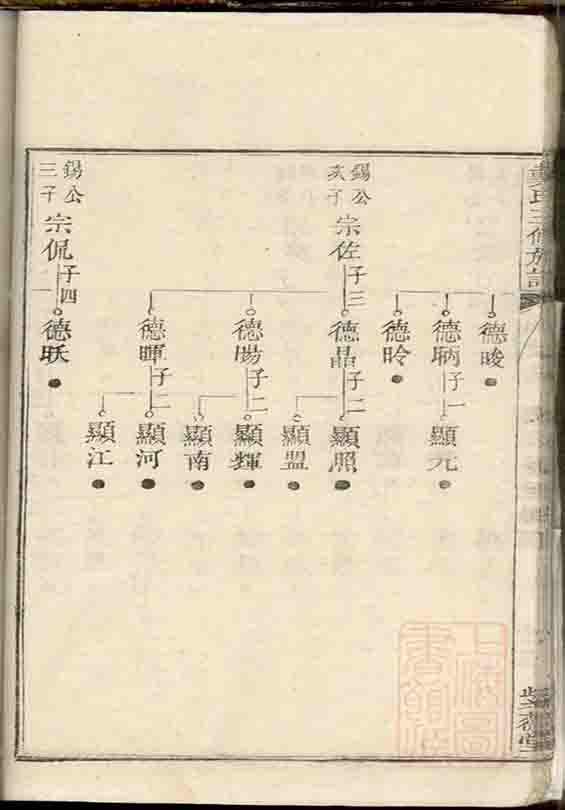 氏三修族譜
德晙
德昞 子一 顯元
德昤
錫公次子 宗佐 子三 德晶 子二 顯照
顯盟
德暘 子二 顯輝
顯南
德暉 子二 顯河
顯江
錫公三子 宗侃 子四 德昳
上海圖
書館藏